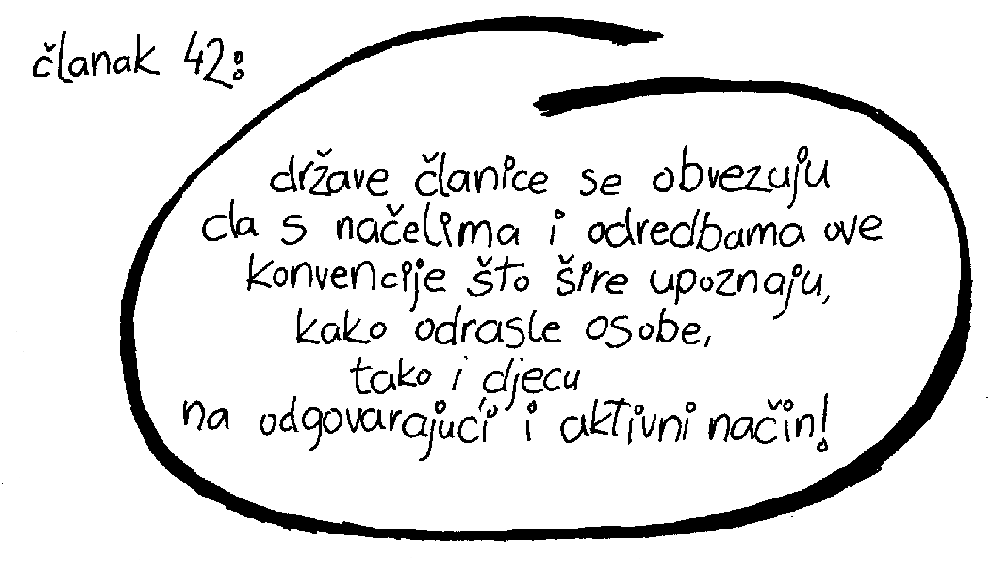 članak 42:
države članice se obvezuju
da s načelima i odredbama ove
konvencije što šire upoznaju,
kako odrasle osobe,
tako i djecu
na odgovarajući i aktivni način!